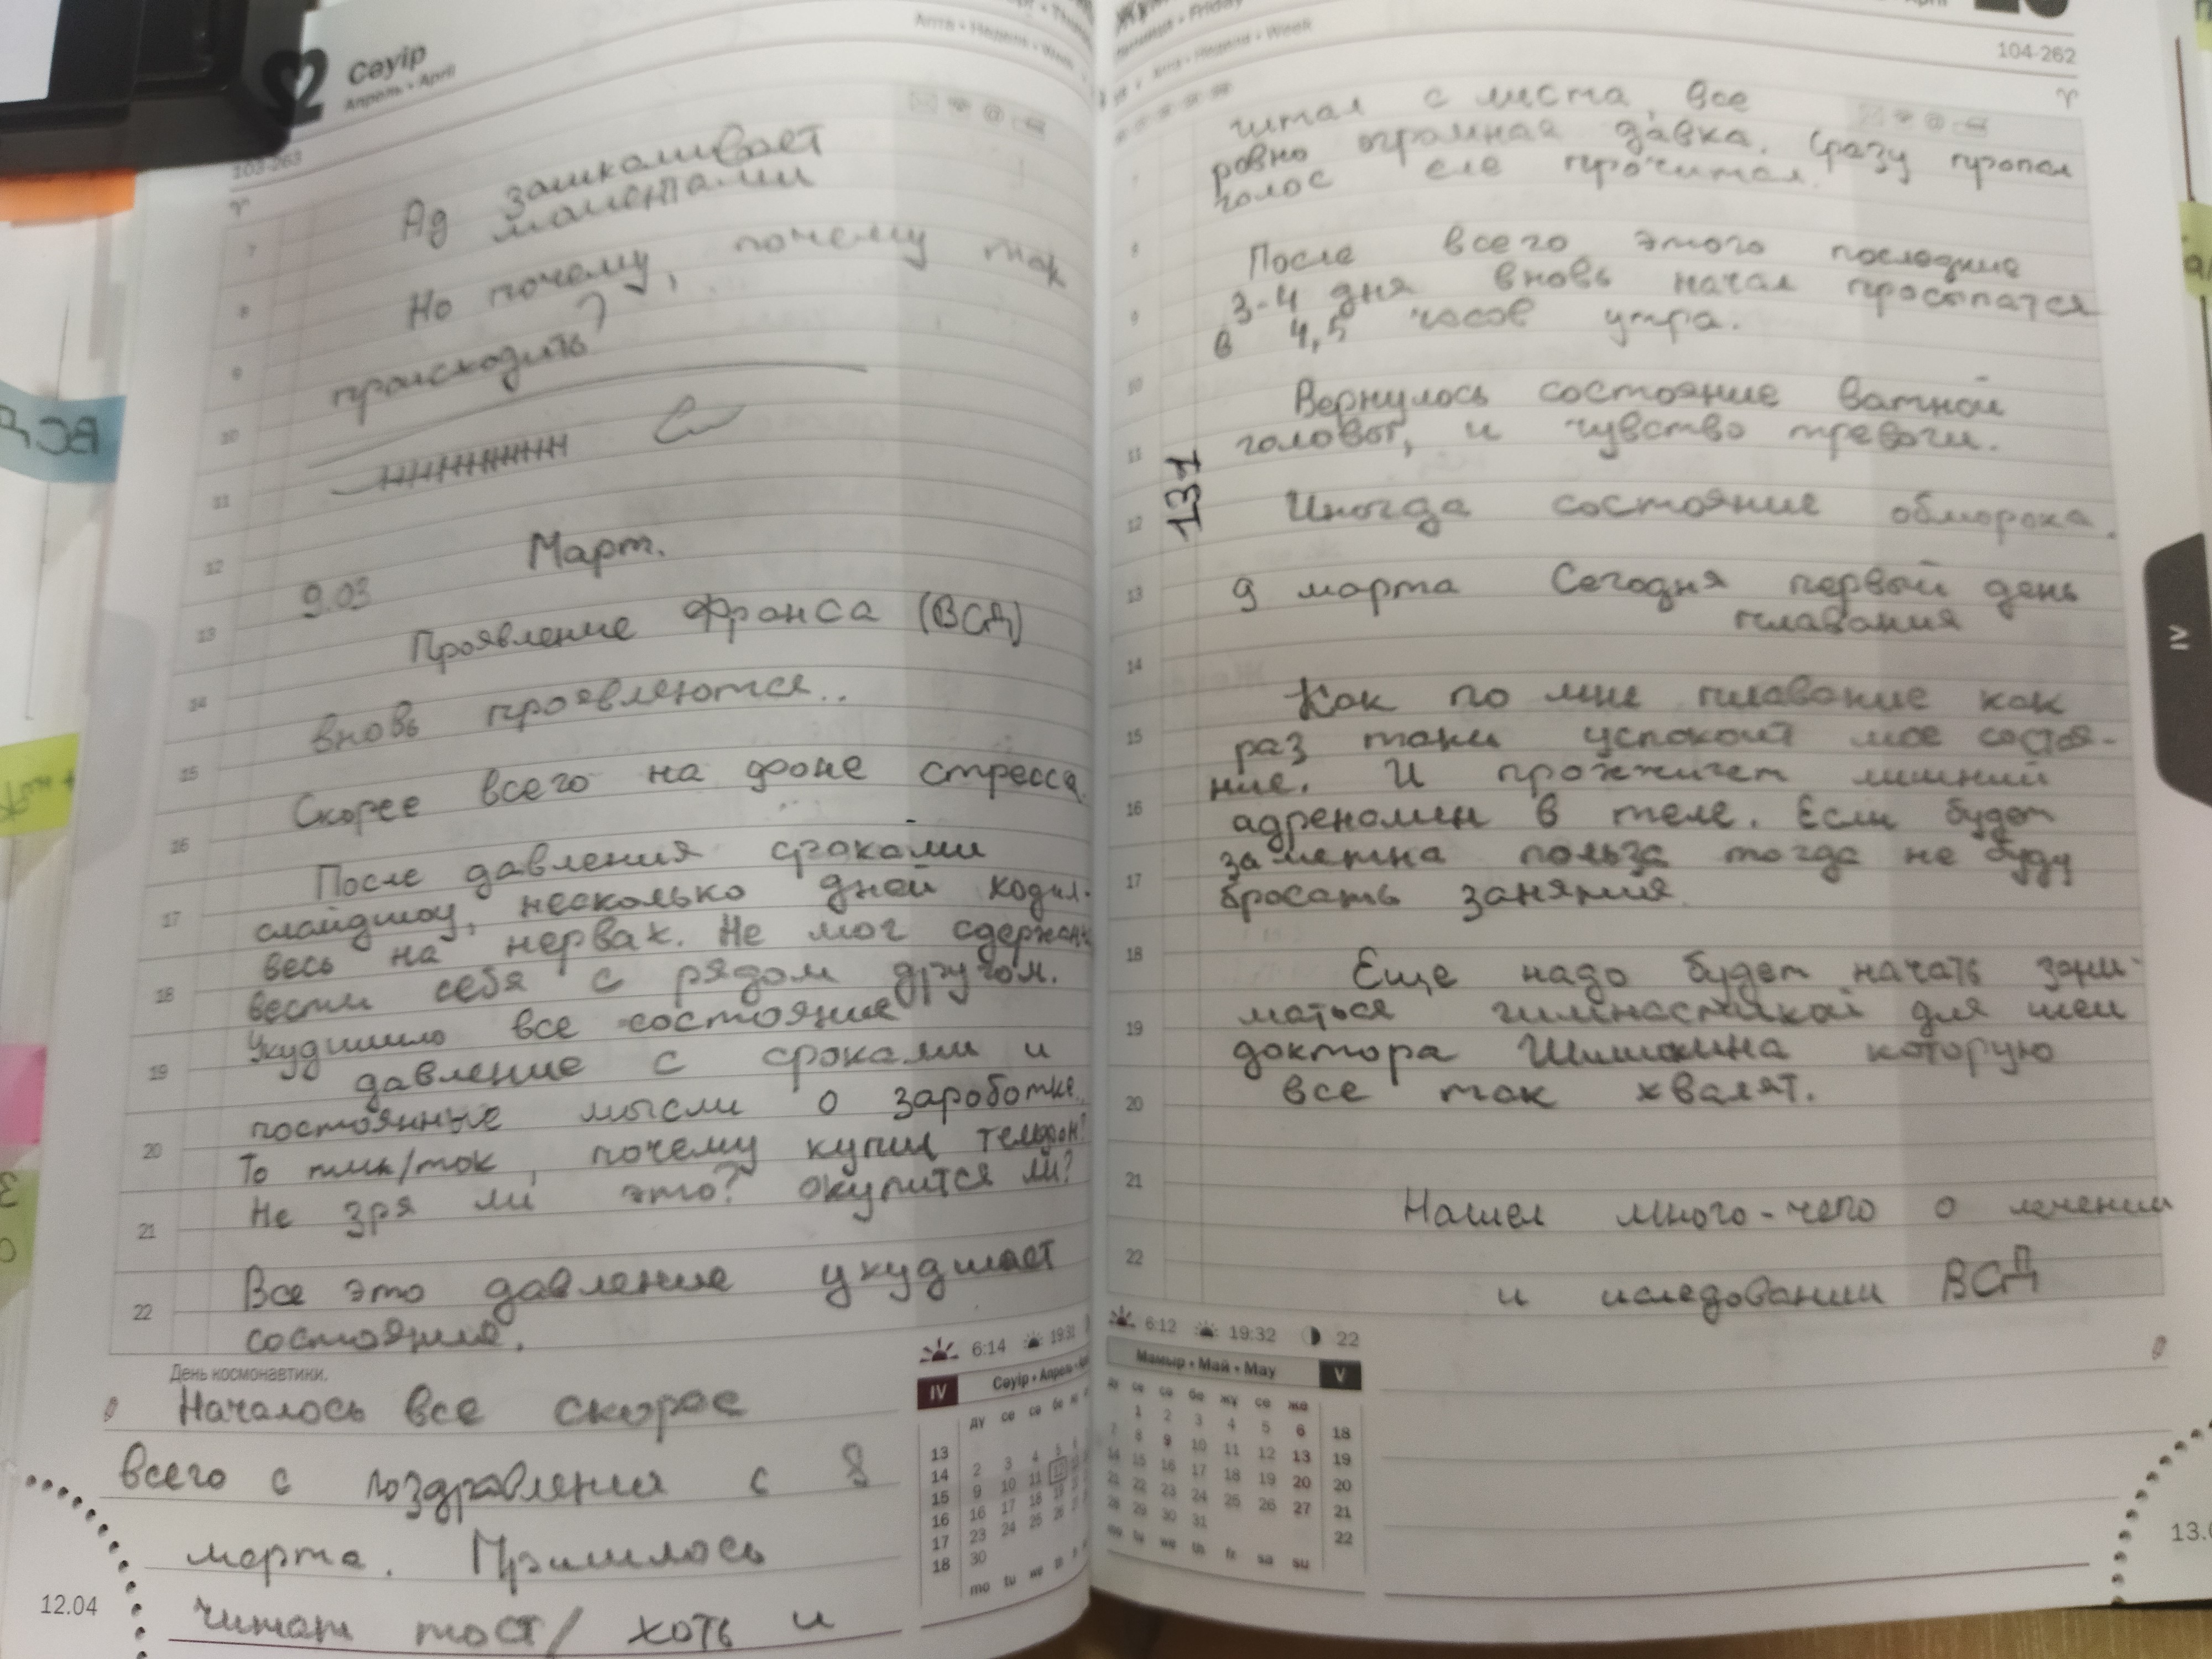 12 Сәуір
Апрель • April
Апта • Неделя • Week
103-263
Ад зашкаливает
моментами
Но почему, почему так
происходить?
Март.
9.03
Проявление Франса (ВСД)
вновь проявляются..
Скорее всего на фоне стресса.
После давления сроками
слайдшоу, несколько дней ходил
весь на нервах. Не мог сдержанно
вести себя с рядом другом.
Ухудшило все состояние
давление с сроками и
постоянные мысли о зароботке.
То тик/ток, почему купил телефон?
Не зря ли это? окупится ли?
Все это давление ухудшает
состояние.
День космонавтики.
Началось все скорее
всего с поздравления с 8
марта. Пришлось
читат тост/ хоть и
12.04
6:14 19:31
IV Сәуір • Апрель
ду се сә бе
13
14 2 3 4 5
15 9 10 11 12
16 16 17 18 19
17 23 24 25 26
18 30
mo tu we
пятница • Friday
Апта • Неделя • Week
104-262
читал с листа, все
ровно огромная давка. Сразу пропал
голос еле прочитал.
После всего этого последние
3-4 дня вновь начал просыпатся
в 4,5 часов утра.
Вернулось состояние ватной
головы, и чувство тревоги.
131
Иногда состояние обморока.
9 марта Сегодня первый день
плавания
Как по мне плавание как
раз таки успокоит мое состоя-
ние. И прожжигет лишний
адреналин в теле. Если будет
заметна польза тогда не буду
бросать занятия.
Еще надо будет начать зани-
маться гимнастикой для шеи
доктора Шишонина которую
все так хвалят.
Нашел много-чего о лечении
и иследовании ВСД
6:12 19:32 22
Мамыр • Май • May V
ду се сә бе жұ се же
1 2 3 4 5 6 18
7 8 9 10 11 12 13 19
14 15 16 17 18 19 20 20
21 22 23 24 25 26 27 21
28 29 30 31 22
mo tu we th fr sa su
IV
ВСД
7
8
9
10
11
12
13
14
15
16
17
18
19
20
21
22